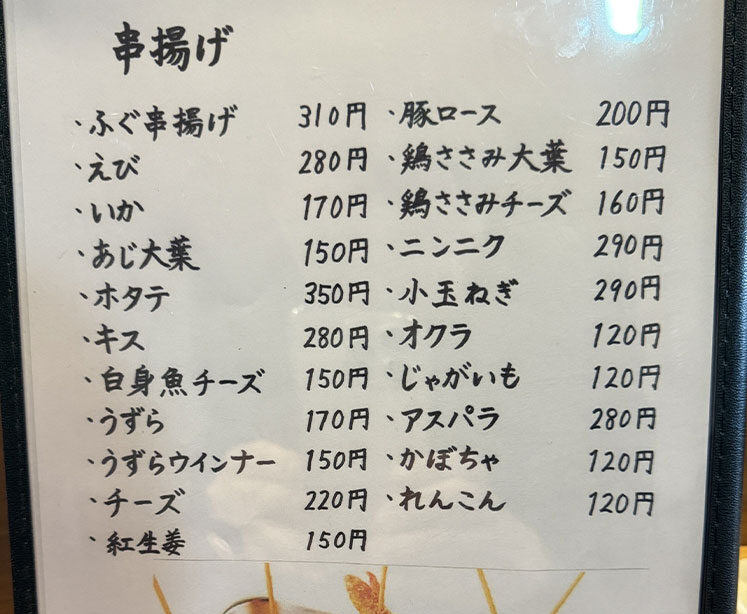 串揚げ
・ふぐ串揚げ 310円
・えび 280円
・いか 170円
・あじ大葉 150円
・ホタテ 350円
・キス 280円
・白身魚チーズ 150円
・うずら 170円
・うずらウインナー 150円
・チーズ 220円
・紅生姜 150円
・豚ロース 200円
・鶏ささみ大葉 150円
・鶏ささみチーズ 160円
・ニンニク 290円
・小玉ねぎ 290円
・オクラ 120円
・じゃがいも 120円
・アスパラ 280円
・かぼちゃ 120円
・れんこん 120円